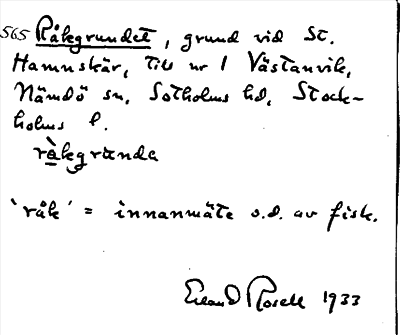 565 Råkgrundet, grund vid St.
Hamnskär, till nr 1 Västanvik,
Nämdö sn, Sotholms hd, Stock-
holms l.
rå̀kgrundə
'råk' = innanmäte o.d. av fisk.
Erland Rosell 1933